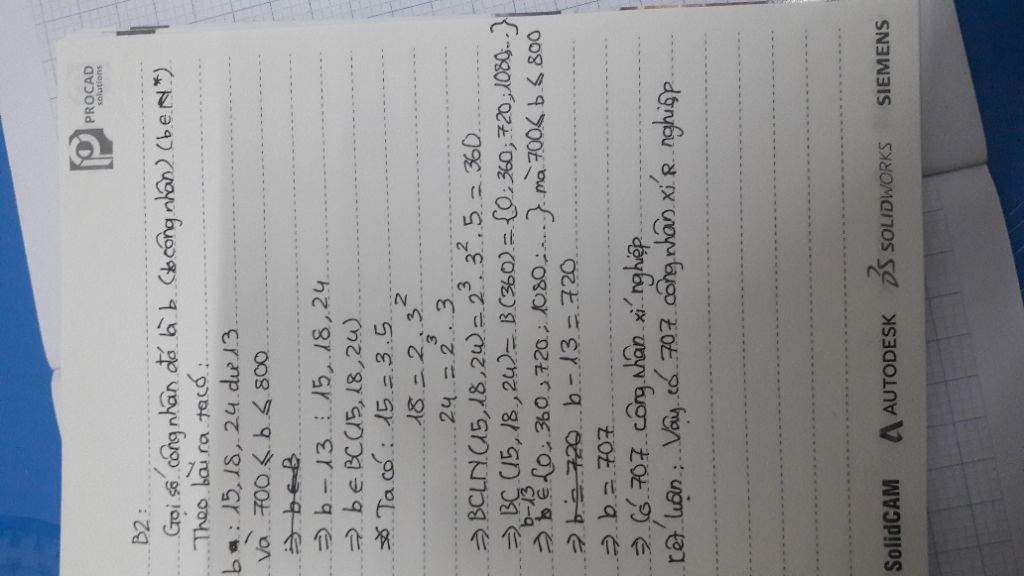 PROCAD
solutions
B2:
Gọi số công nhân đó là b (b công nhân) (b ∈ N*)
Theo bài ra ta có:
b : 15, 18, 24 dư 13
và 700 ≤ b ≤ 800
⇒ b ∈ B
⇒ b - 13 ⋮ 15, 18, 24
⇒ b ∈ BC(15, 18, 24)
Ta có: 15 = 3 . 5
18 = 2 . 3²
24 = 2³ . 3
⇒ BCLN(15, 18, 24) = 2³ . 3² . 5 = 360
⇒ BC(15, 18, 24) = B(360) = {0; 360; 720; 1080;...}
b-13
⇒ b ∈ {0; 360; 720; 1080;....} mà 700 ≤ b ≤ 800
⇒ b = 720 b - 13 = 720
⇒ b = 707
⇒ Có 707 công nhân xí nghiệp
Kết luận: Vậy có 707 công nhân xí R nghiệp
SolidCAM AUTODESK SOLIDWORKS SIEMENS